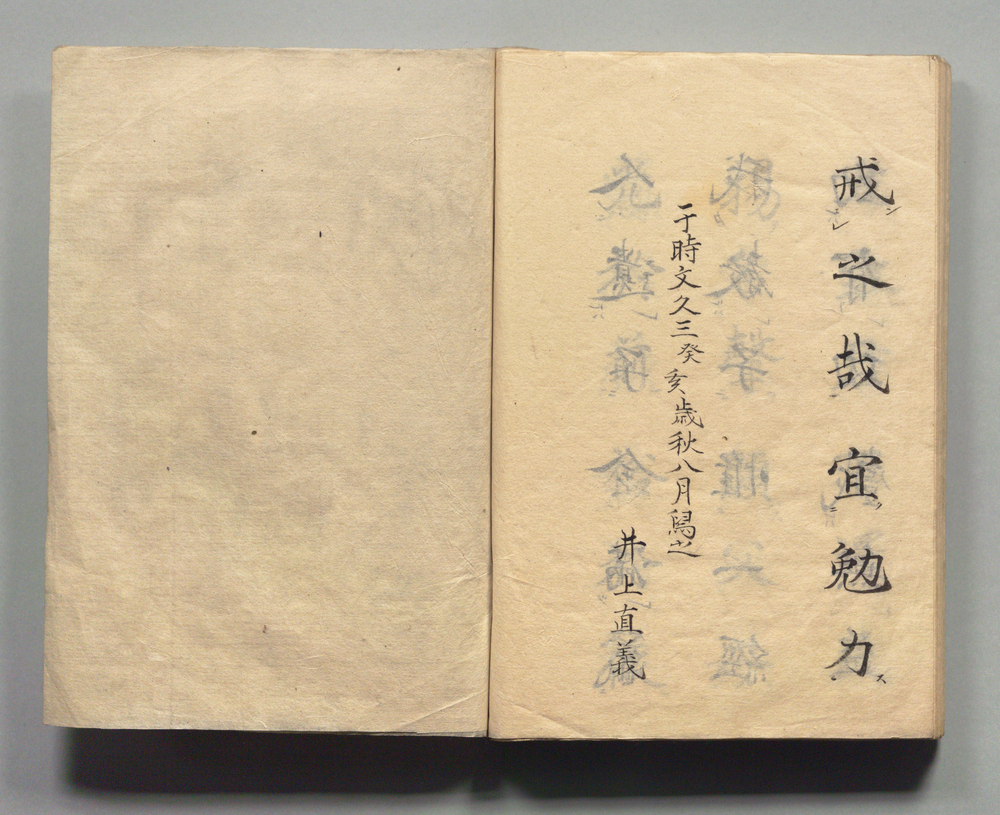 戒之哉宜勉力
于時文久三癸亥歳秋八月写之
井上直義